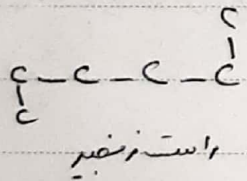 C
C – C – C – C
C
راست زنجیر